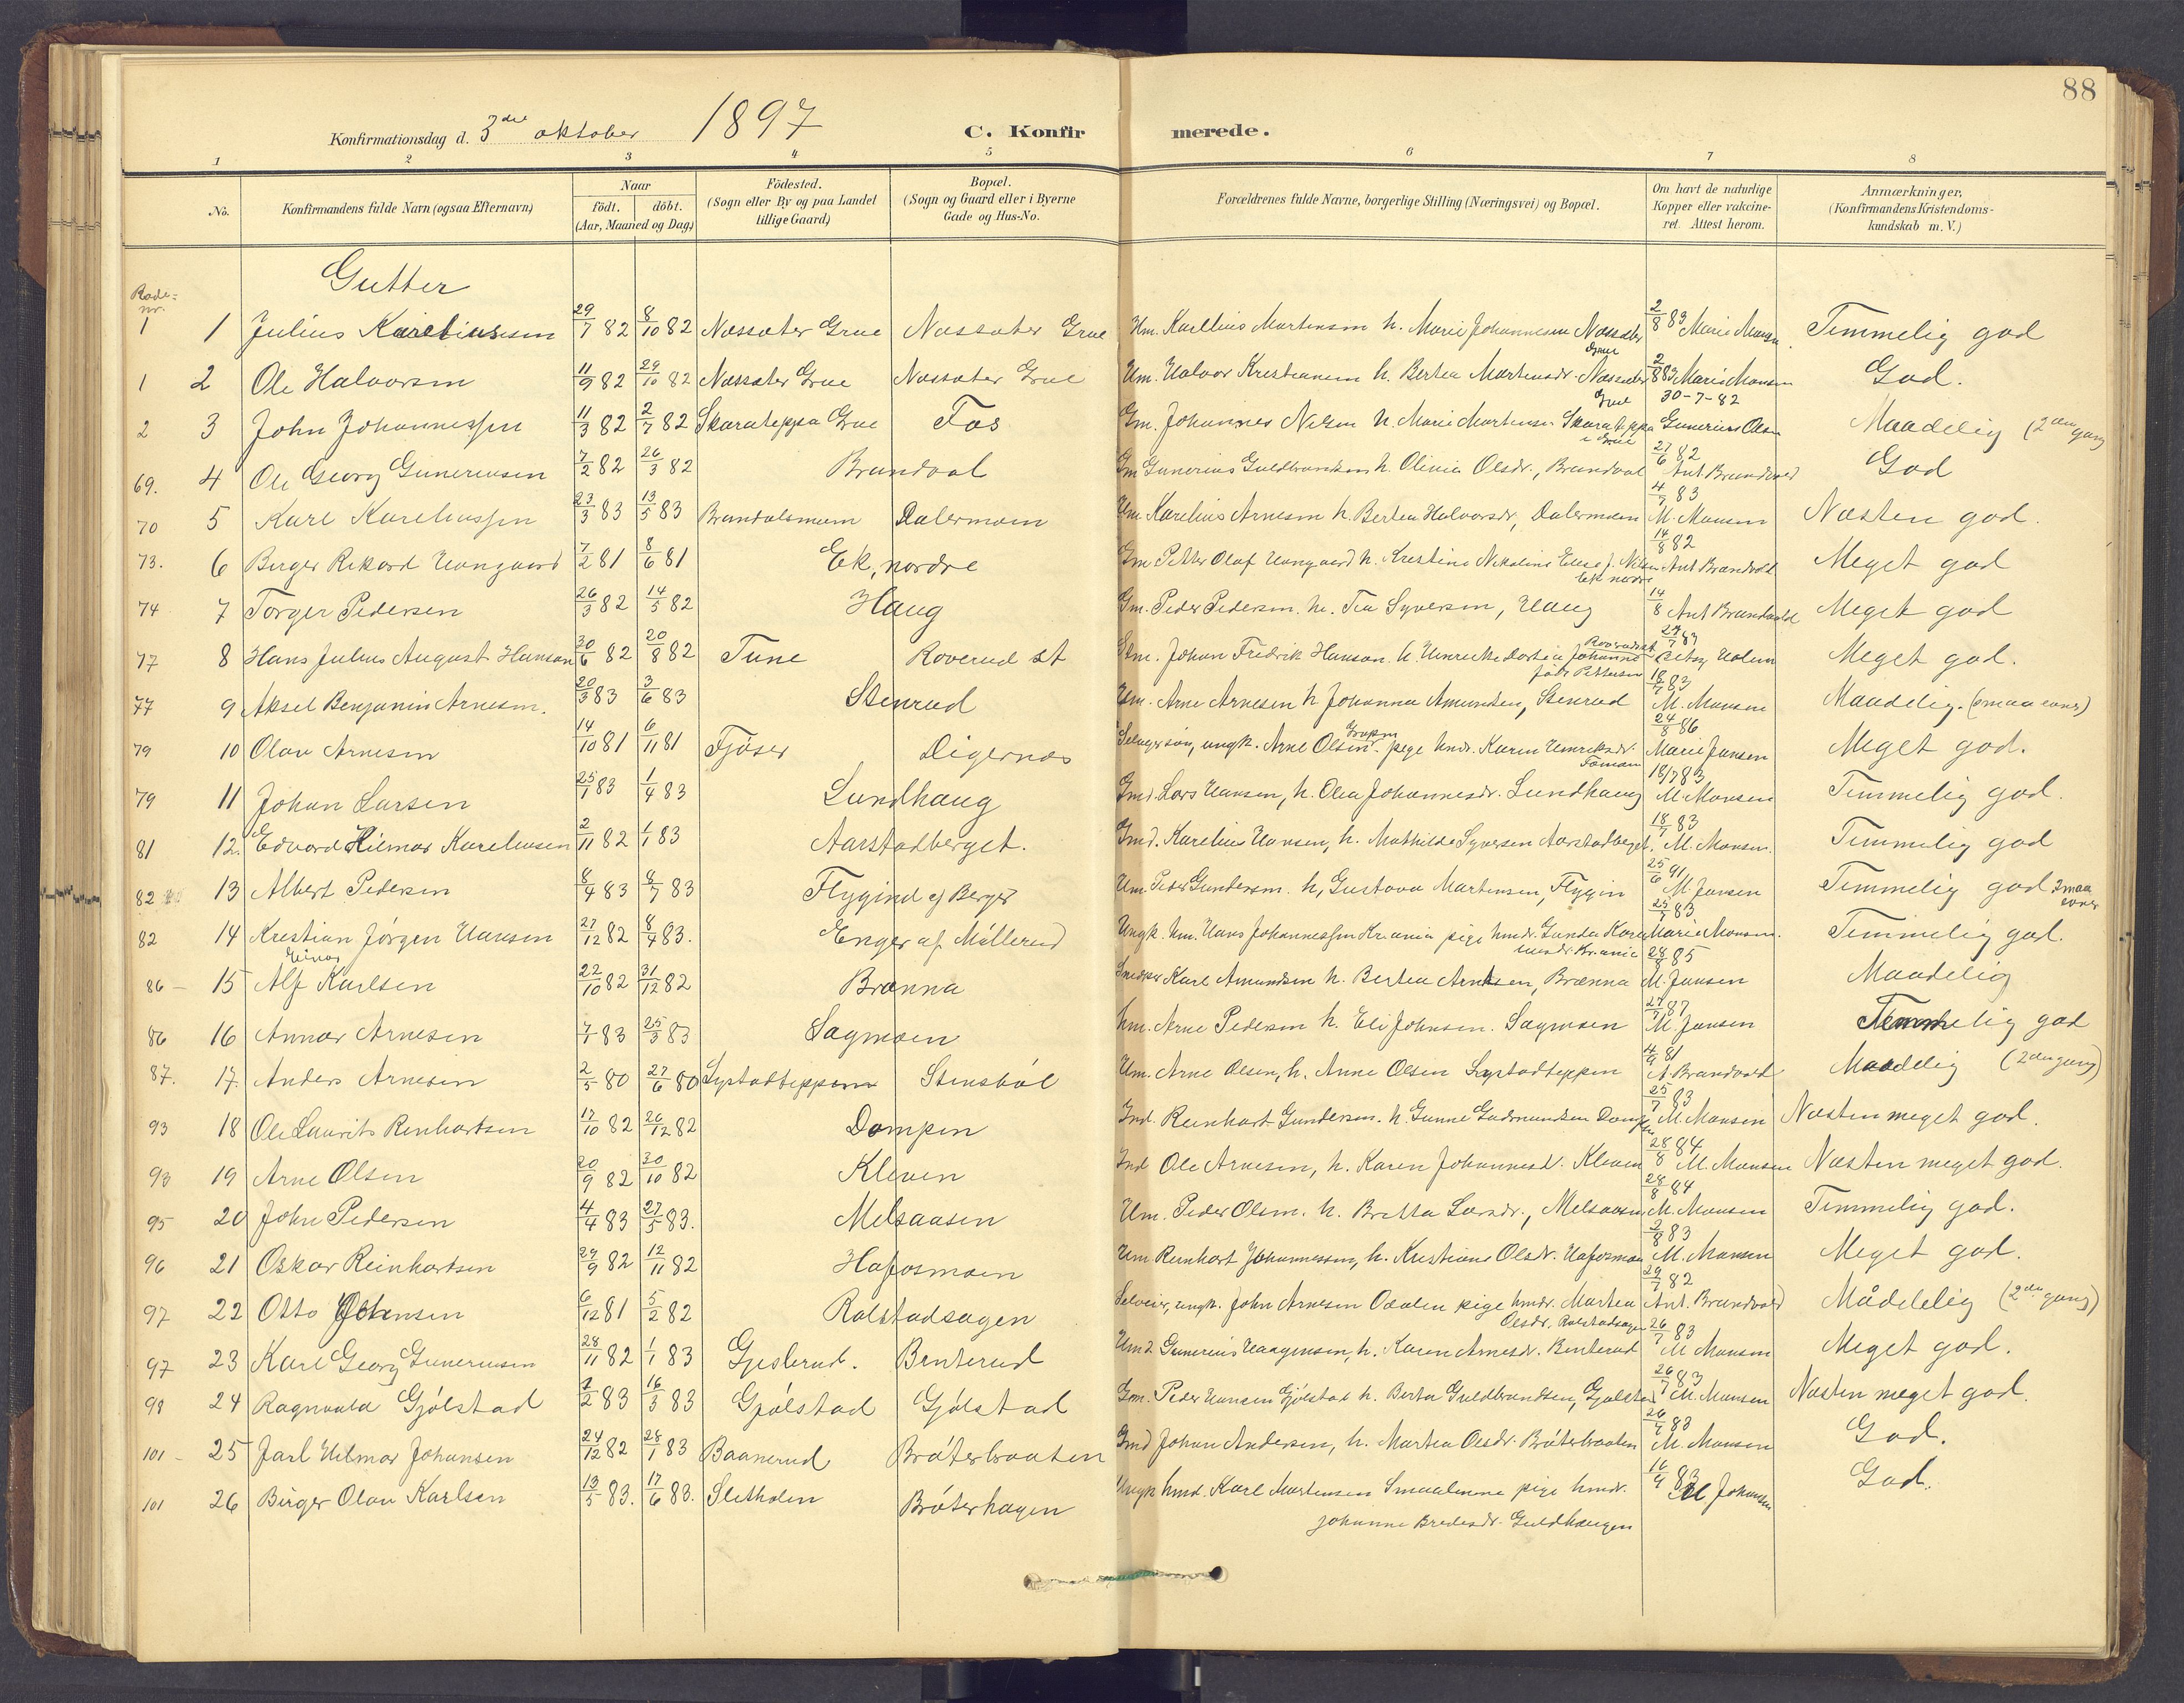 88
Konfirmationsdag d. 3die oktober 1897 C. Konfirmerede.
1 2 3 4 5 6 7 8
No. Konfirmandens fulde Navn (ogsaa Efternavn) Naar Födt. döbt. (Aar, Maaned og Dag) Födested. (Sogn eller By og paa Landet tillige Gaard) Bopæl. (Sogn og Gaard eller i Byerne Gade og Hus-No. Forældrenes fulde Navne, borgerlige Stilling (Næringsvei) og Bopæl. Om havt de naturlige Kopper eller vakcineret. Attest herom. Anmærkninger, (Konfirmandens Kristendomskundskab m. V.)
Gutter
Rode=nr.
1 1 Julius Kareliussen 29/7 82 8/10 82 Næssæter Grue Næssæter Grue Hm. Karelius Martensen h. Marie Johannesen Næssæter Grue 2/8 83 Marie Monsen Temmelig god
1 2 Ole Halvorsen 11/9 82 29/10 82 Næssæter Grue Næssæter Grue Hm. Halvor Kristiansen h. Bertea Martensdr. Næssæter Grue 2/8 83 Marie Monsen God.
2 3 John Johannessen 11/3 82 2/7 82 Skarateppa Grue Fos Gm. Johannes Nilsen h. Marie Martensen Skarateppa i Grue 30-7-82 Gunerius Olsen Maadelig (2den gang
69. 4 Ole Georg Guneriusen 7/2 82 26/3 82 Brandval Gm Gunerius Guldbrandsen h. Olivia Olsdr., Brandval 27/6 82 Ant. Brandvold God
70 5 Karl Kareliussen 23/3 83 13/5 83 Brandvalsmoen Dalermoen Hm. Karelius Arnesen h. Bertea Halvorsdr, Dalermoen 4/7 83 M. Monsen Næsten god.
73. 6 Birger Rikard Haugaard 7/2 81 8/6 81 Ek, nordre Gm Petter Olaf Haugaard h. Kristine Nikoline Elise f. Nilsen Ek nordre 14/8 82 Ant Brandvold Meget god
74 7 Torger Pedersen 26/3 82 14/5 82 Haug Gm. Peder Pedersen. h. Tea Syversen, Haug 14/8 Ant Brandvold Meget god
77 8 Hans Julius August Hansen 30/6 82 20/8 82 Tune Roverud st Johan Fredrik Hansen. h. Henrikke Dortea Johanne født Pettersen Roverud st 29/7 89 Betsy Holum Meget god.
77 9 Aksel Benjamin Arnesen. 20/3 83 3/6 83 Stenrud Hm. Arne Arnesen h Johanna Amundsen, Stenrud 18/7 83 M. Monsen Maadelig. (smaa evner)
79 10 Olav Arnesen 14/10 81 6/11 81 Fjöser Digernæs Selveiersön, ungk. Arne Olsen. pige hmdr. Karen Henriksdr. 24/8 86 Marie Jansen Meget god.
79 11 Johan Larsen 25/1 83 1/4 83 Lundhaug Gmd. Lars Hansen, h. Olea Johannesdr. Lundhaug 18/7 83 M. Monsen Temmelig god.
81 12. Edvard Hilmar Kareliusen 2/11 82 1/1 83 Aarstadberget. Gmd. Karelius Hansen, h. Mathilde Syversen Aarstadberget. 18/7 83 M. Monsen. Temmelig god
82 13 Albert Pedersen 8/4 83 8/7 83 Flygind af Berger Hm Peder Gundersen. h, Gustava Martensen, Flygin 25/6 91 M. Jansen Temmelig god smaa evner
82 14 Kristian Jørgen Hansen 27/12 82 8/4 83. Enger af Möllerud Ungk. hm. Hans Johannessen Kr.ania pige hmdr. Gunda Kareliusdr. Kr.ania 25/7 83 Marie Monsen. Temmelig god.
86 – 15 Alf Einar Karlsen 22/10 82 31/12 82 Brænna Smedker Karl Amundsen h. Bertea Arntsen, Brænna 28/8 85 M. Jansen Maadelig
86 16 Annar Arnesen 7 83 25/3 83 Sagmoen hm. Arne Pedersen h. Eli Johnsen. Sagmoen 27/7 87 M. Jansen Temmelig god
87. 17. Anders Arnesen 2/5 80 27/6 80 Lystadteppen Stensböl Hm. Arne Olsen, h. Anne Olsen Lystadteppen 4/9 81 A. Brandvold Maadelig (2den gang)
93 18 Ole Laurits Renhartsen 17/10 82 26/12 82 Dompen Ind. Reinhart Gundersen. h. Gunne Gudmundsen Dompen 25/7 83 M. Monsen Næsten meget god.
93 19 Arne Olsen 20/9 82 30/10 82 Kleven Ind Ole Arnesen, h. Karen Johannesd. Kleven 28/8 84 M. Monsen Næsten meget god.
95 20 John Pedersen 4/4 83 27/5 83. Melsaasen Hm. Peder Olsen. h. Britta Larsdr., Melsaasen 28/8 84 M. Monsen Temmelig god.
96 21 Oskar Reinhartsen 29/9 82 12/11 82 Hafosmoen Hm Reinhart Johannessen, h. Kristiane Olsdr. Hafosmoen 2/8 83 M. Monsen Meget god.
97 22 Otto Johnsen 6/12 81 5/2 82 Rolstadsagen Selveier, ungk. John Arnesen Odalen pige hmdr. Martea Olsdr. Rolstadsagen 29/7 82 Ant. Brandvold Mådelelig (2den gang)
97 23 Karl Georg Guneriusen 28/11 82 1/1 83 Gjeslerud. Benterud Hmd. Gunerius Haagensen, h. Karen Arnesdr. Benterud 26/7 83 M Monsen Meget god.
98 24 Ragnvald Gjölstad 2/2 83 16/3 83 Gjölstad Gjölstad Gm. Peder Hansen Gjölstad h. Berta Guldbrandsen, Gjölstad 26/7 83 M. Monsen Næsten meget god.
101 – 25 Jarl Hilmar Johansen 24/12 82 28/1 83 Baanerud Bråterbraaten Gmd Johan Andersen, h. Martea Olsdr. Bråterbraaten 26/7 83 M. Monsen God.
101 26 Birger Olav Karlsen 13/5 83. 17/6 83. Sletholen Bråterhagen Ungk hmd. Karl Martensen Smaalenene pige hmdr. 16/9 83 M Johansen God.
Johanne Bredesdr. Guldhaugen